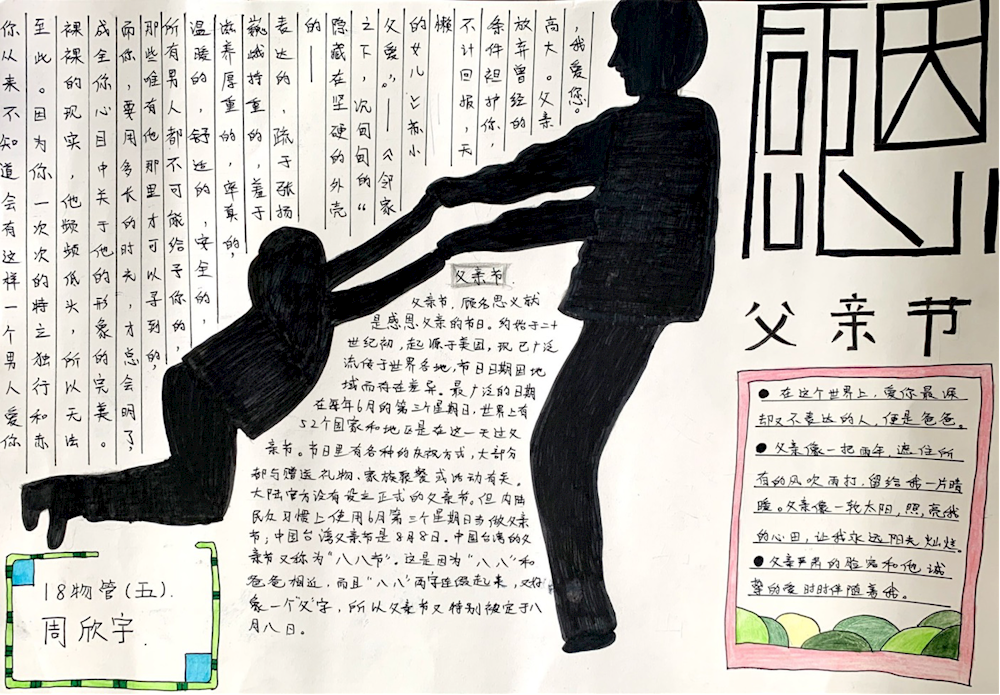 感恩
父亲节
你从来不知道会有这样一个男人爱你
至此。因为你一次次的特立独行和赤
裸裸的现实,他频频低头,所以无法
成全你心目中关于他的形象的完美。
而你,要用多长的时光,才总会明了,
那些唯有他那里才可以予到的,
所有男人都不可能给予你的,
温暖的,舒适的,安全的,
滋养厚重的,率真的,
巍峨持重的,羞于
表达的,疏于张扬
的——
隐藏在坚硬的外壳
之下,沉甸甸的“
父爱”。——《邻家
的女儿》苏小
懒
不计回报,天
条件袒护你,
放弃曾经的
高大。父亲
,我爱您。
父亲节
父亲节,顾名思义就
是感恩父亲的节日。约始于二十
世纪初,起源于美国,现已广泛
流传于世界各地,节日日期因地
域而存在差异。最广泛的日期
在每年6月的第三个星期日,世界上有
52个国家和地区是在这一天过父
亲节。节日里有各种的庆祝方式,大部分
都与赠送礼物、家族聚餐或活动有关。
大陆官方没有设立正式的父亲节。但内陆
民众习惯上使用6月第三个星期日当做父亲
节;中国台湾父亲节是8月8日。中国台湾的父
亲节又称为“八八节”。这是因为“八八”和
爸爸相近,而且“八八”两字连缀起来,又好
象一个“父”字,所以父亲节又特别被定于八
月八日。
●在这个世界上,爱你最深
却又不表达的人,便是爸爸。
●父亲像一把雨伞,遮住所
有的风吹雨打,留给我一片晴
暖。父亲像一轮太阳,照亮我
的心田,让我永远阳光灿烂。
●父亲严肃的脸容和他诚
挚的爱时时伴随着我。
18物管(五).
周欣宇.